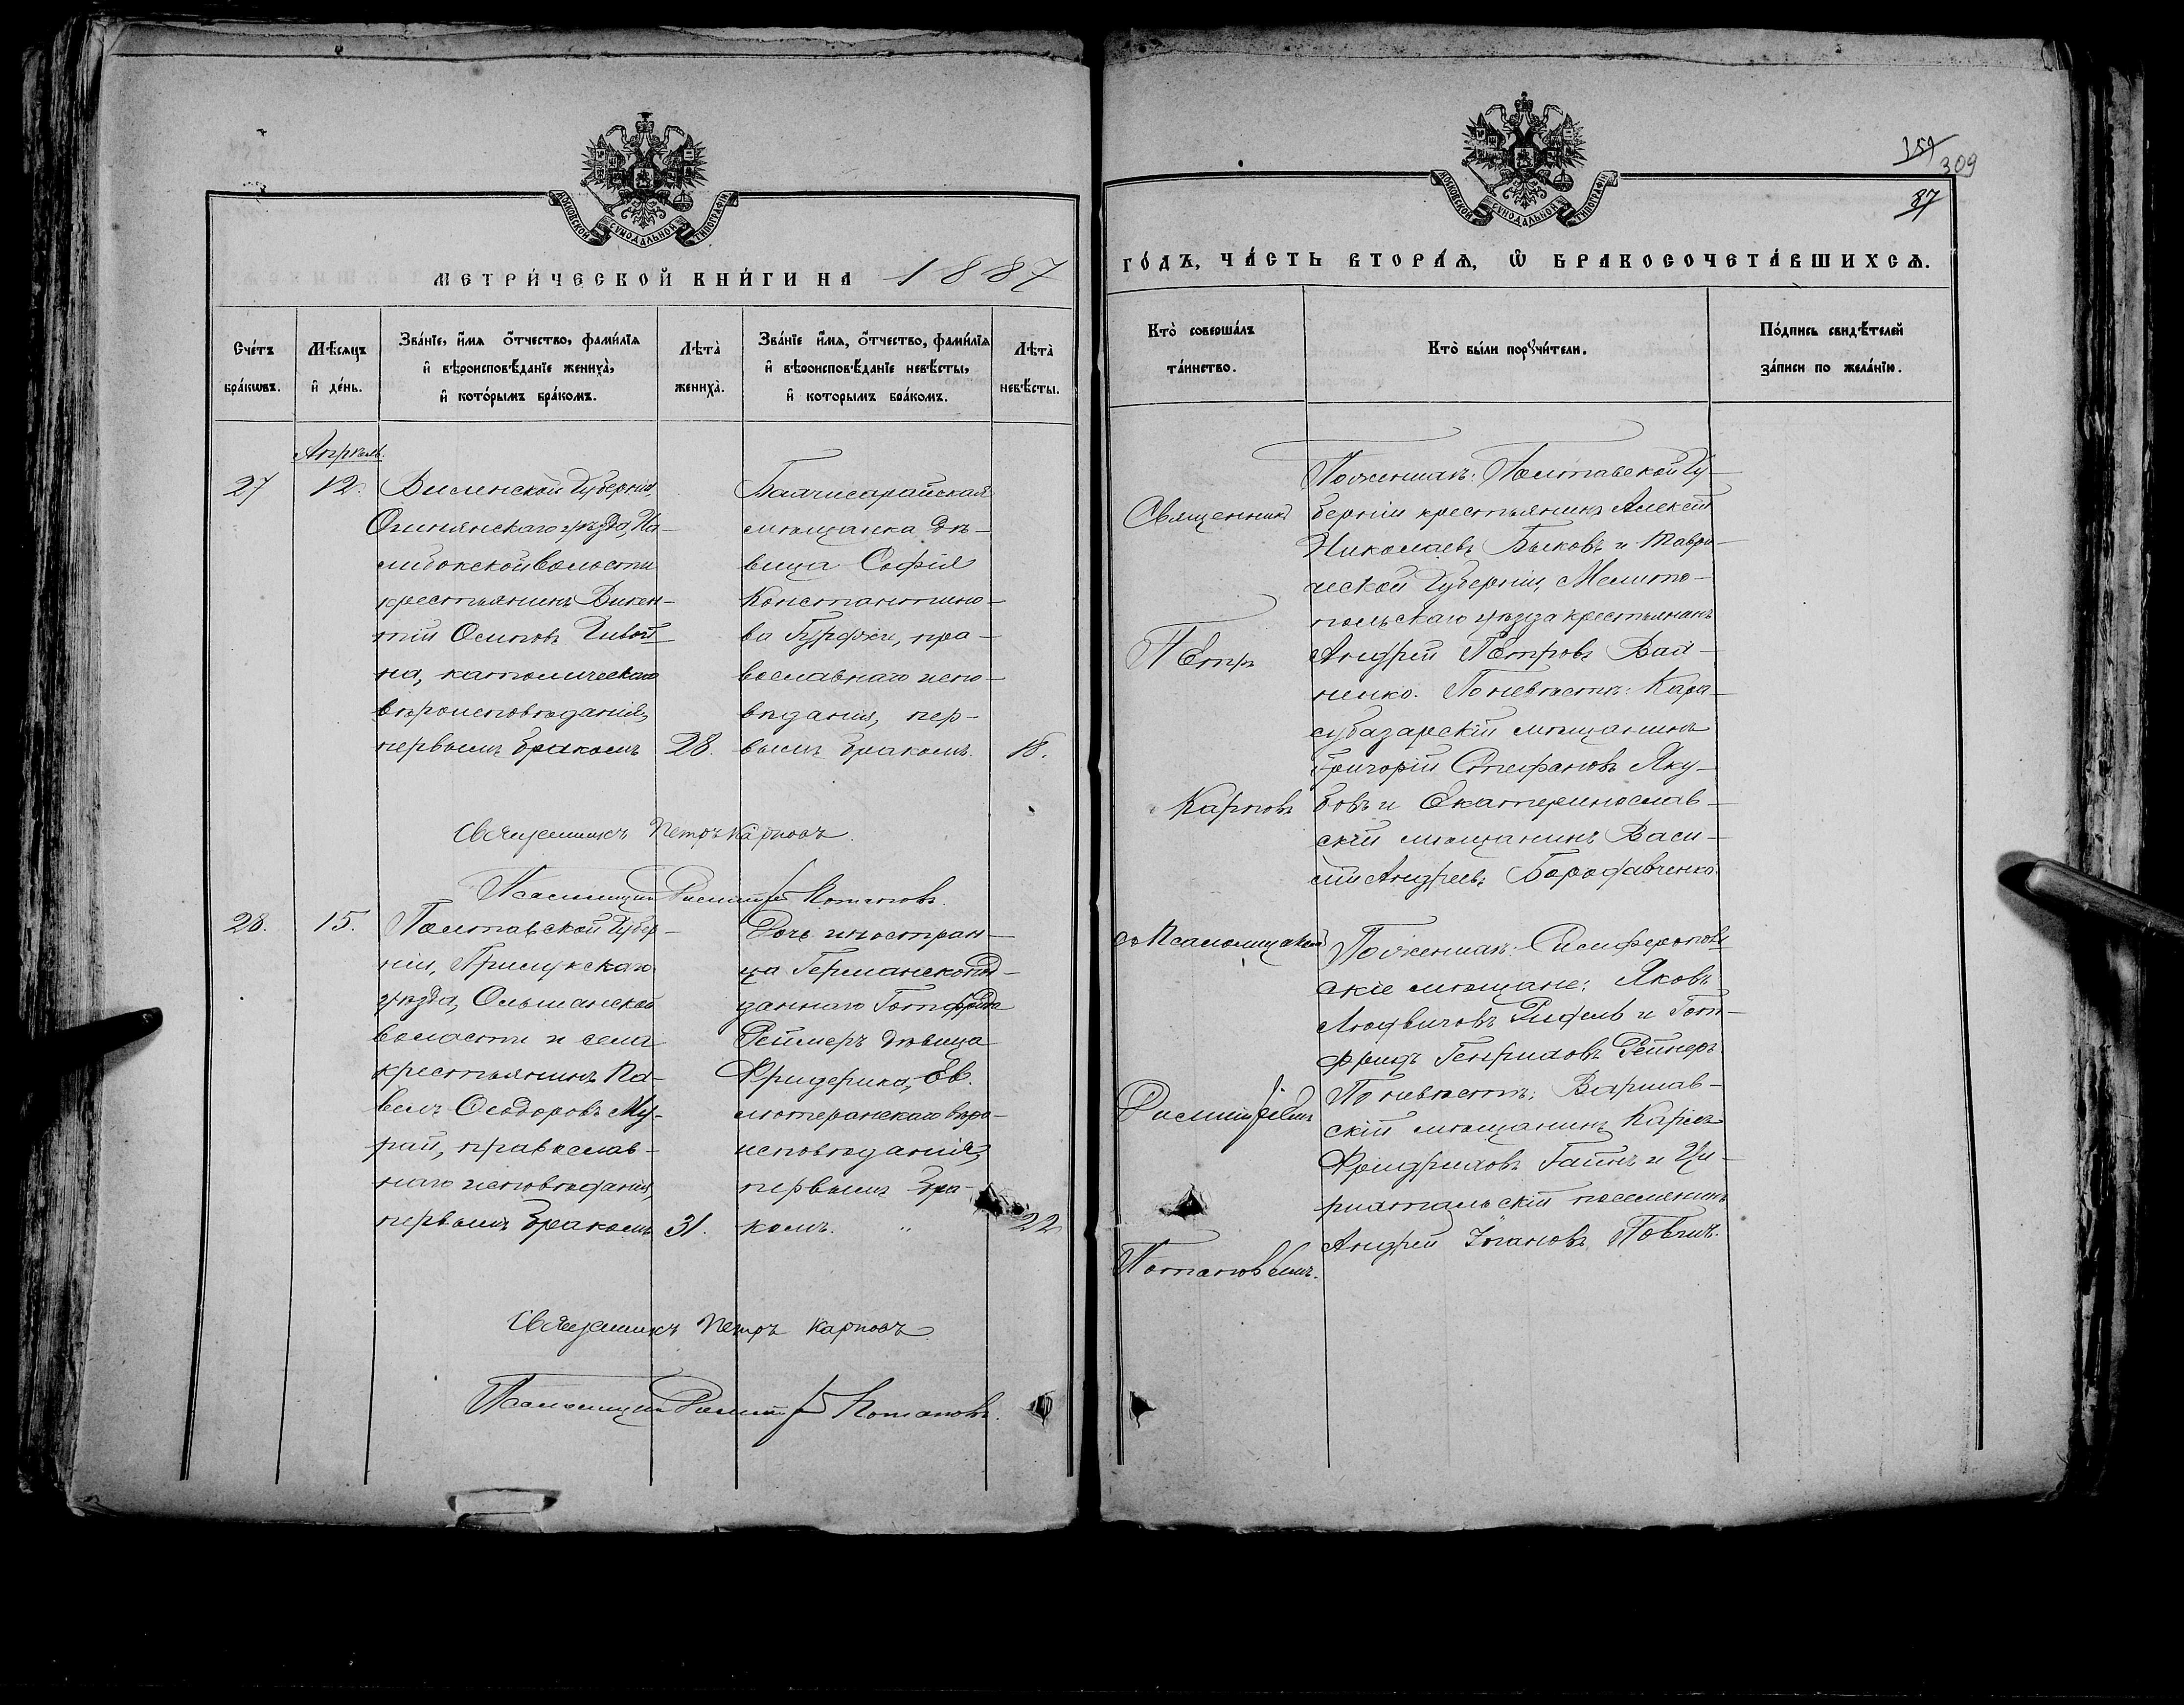 МОСКОВСКОЙ СУНОДАЛЬНОЙ ТИПОГРАФІИ
МЕТРИ́ЧЕСКОЙ КНИ́ГИ НА 1887
Сче́тъ бра́кωвъ.
Мѣ́сяцъ и҆ де́нь.
Зва́нїе, и҆́мя ѻ҆́тчество, фами́лїя
и҆ вѣроисповѣ́данїе жениха̀,
и҆ кото́рымъ бра́комъ.
Лѣта̀
жениха̀.
Зва́нїе и҆́мя, ѻ҆́тчество, фами́лїя
и҆ вѣроисповѣ́данїе невѣ́сты,
и҆ которымъ бра́комъ.
Лѣта̀
невѣ́сты.
Апрѣль
27
12.
Виленской Губерніи,
уѣзда,
волости
крестьянинъ Викен-
тій Осиповъ
на, католическаго
вѣроисповѣданія,
первымъ бракомъ
28.
Бахчисарайская
мѣщанка дѣ-
вица Софія
Константино-
ва Гурджи, пра-
вославнаго испо-
вѣданія, пер-
вымъ бракомъ.
18.
Священникъ Петръ Карповъ.
Псаломщикъ Димитрій Потаповъ.
28.
15.
Полтавской Губер-
ніи, Прилукскаго
уѣзда, Ольшанской
волости и села
крестьянинъ Па-
велъ Ѳеодоровъ Му-
рай, православ-
наго исповѣданія,
первымъ бракомъ
31.
Дочь иностран-
ца Германскопод-
даннаго Готфрида
Реймеръ дѣвица
Фридерика, Ев.
лютеранскаго вѣро-
исповѣданія,
первымъ бра-
комъ. "
22
Священникъ Петръ Карповъ
Псаломщикъ Димитрій Потаповъ.
МОСКОВСКОЙ СУНОДАЛЬНОЙ ТИПОГРАФІИ
309
87
ГО́ДЪ, ЧА́СТЬ ВТОРА́Я, Ѿ БРАКОСОЧЕТА́ВШИХСЯ.
Кто̀ соверша́лъ
та́инство.
Кто̀ бы́ли порꙋчи́тели.
По́дпись свидѣ́телей
за́писи по жела́нїю.
Священникъ
Петръ
Карповъ
съ Псаломщикомъ
Димитріемъ
Потаповымъ.
По женихѣ: Полтавской Гу-
берніи крестьянинъ Алексѣй
Николаевъ Быковъ и Таври-
ческой Губерніи, Мелито-
польскаго уѣзда крестьянинъ
Андрей Петровъ Вай-
ненко. По невѣстѣ: Кара-
субазарскій мѣщанинъ
Григорій Стефановъ Яку-
бовъ и Екатеринослав-
скій мѣщанинъ Васи-
лій Андреевъ
По женихѣ: Симферополь-
скіе мѣщане: Яковъ
Людвиговъ Рифель и Гот-
фридъ Генриховъ Рейнеръ.
По невѣстѣ: Варшав-
скій мѣщанинъ Карлъ
Фридриховъ Гаинъ и Цю-
рихтальскій поселянинъ
Андрей Іогановъ